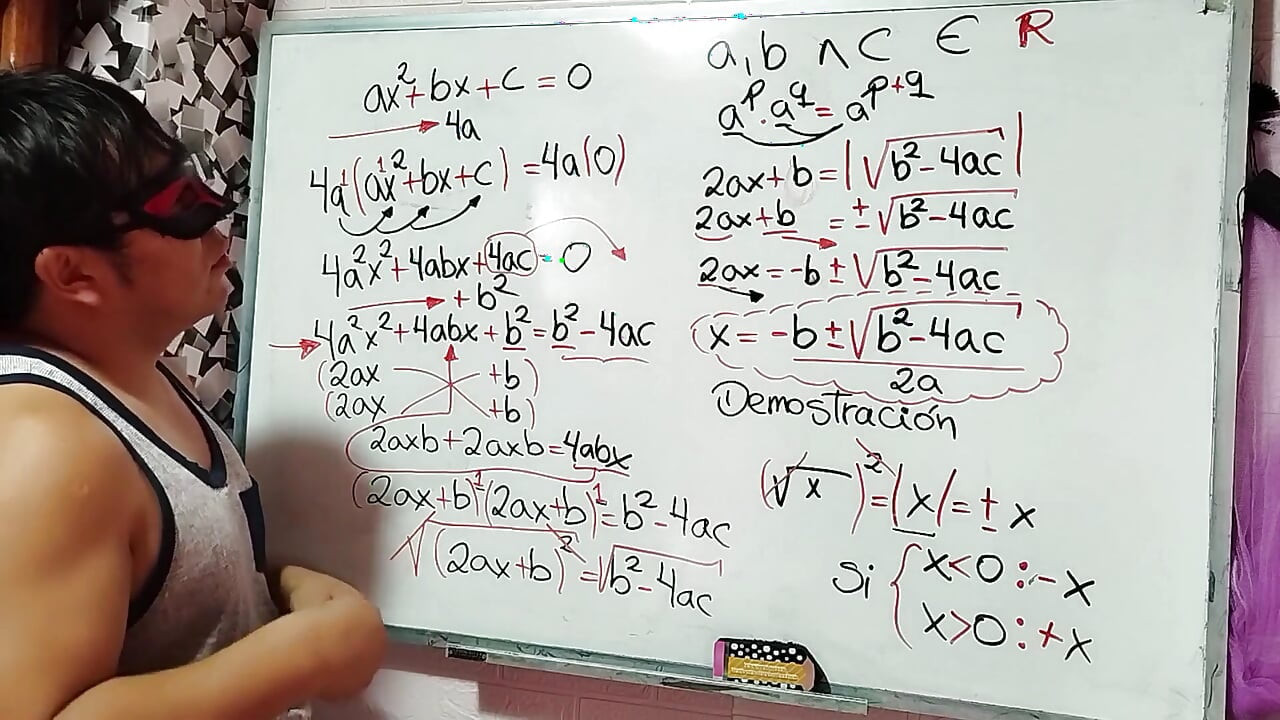 ax²+bx+c=0
4a
4a¹(a¹x²+bx+c)=4a(0)
4a²x²+4abx+4ac=0
+b²
4a²x²+4abx+b²=b²-4ac
(2ax +b)
(2ax +b)
2axb+2axb=4abx
(2ax+b)¹(2ax+b)¹=b²-4ac
√(2ax+b)²=√b²-4ac
a,b ∧ C ∈ R
a^p·a^q=a^p+q
2ax+b=|√b²-4ac|
2ax+b=±√b²-4ac
2ax=-b±√b²-4ac
x=-b±√b²-4ac
2a
Demostración
(√x)²=|x|=±x
Si { x<0:-x
x>0:+x